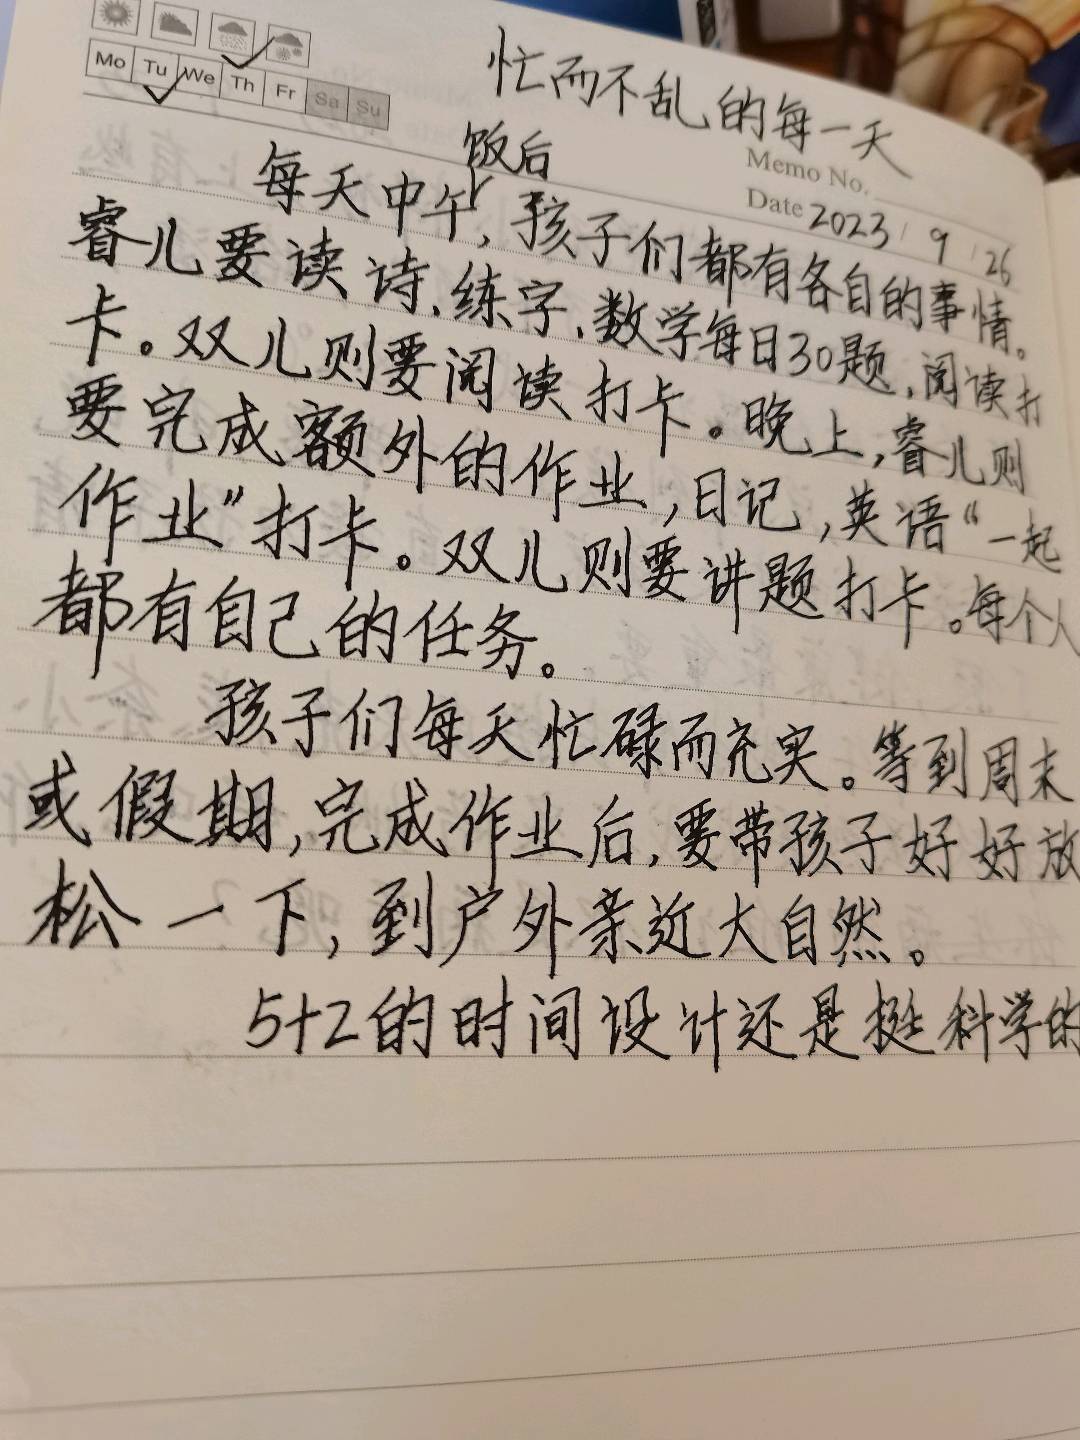 忙而不乱的每一天
Mo Tu We Th Fr Sa Su
Memo No.
Date 2023/9/26
饭后
每天中午,孩子们都有各自的事情。
睿儿要读诗、练字、数学每日30题,阅读打
卡。双儿则要阅读打卡。晚上,睿儿则
要完成额外的作业,日记,英语“一起
作业”打卡。双儿则要讲题打卡。每个人
都有自己的任务。
孩子们每天忙碌而充实。等到周末
或假期,完成作业后,要带孩子好好放
松一下,到户外亲近大自然。
5+2的时间设计还是挺科学的